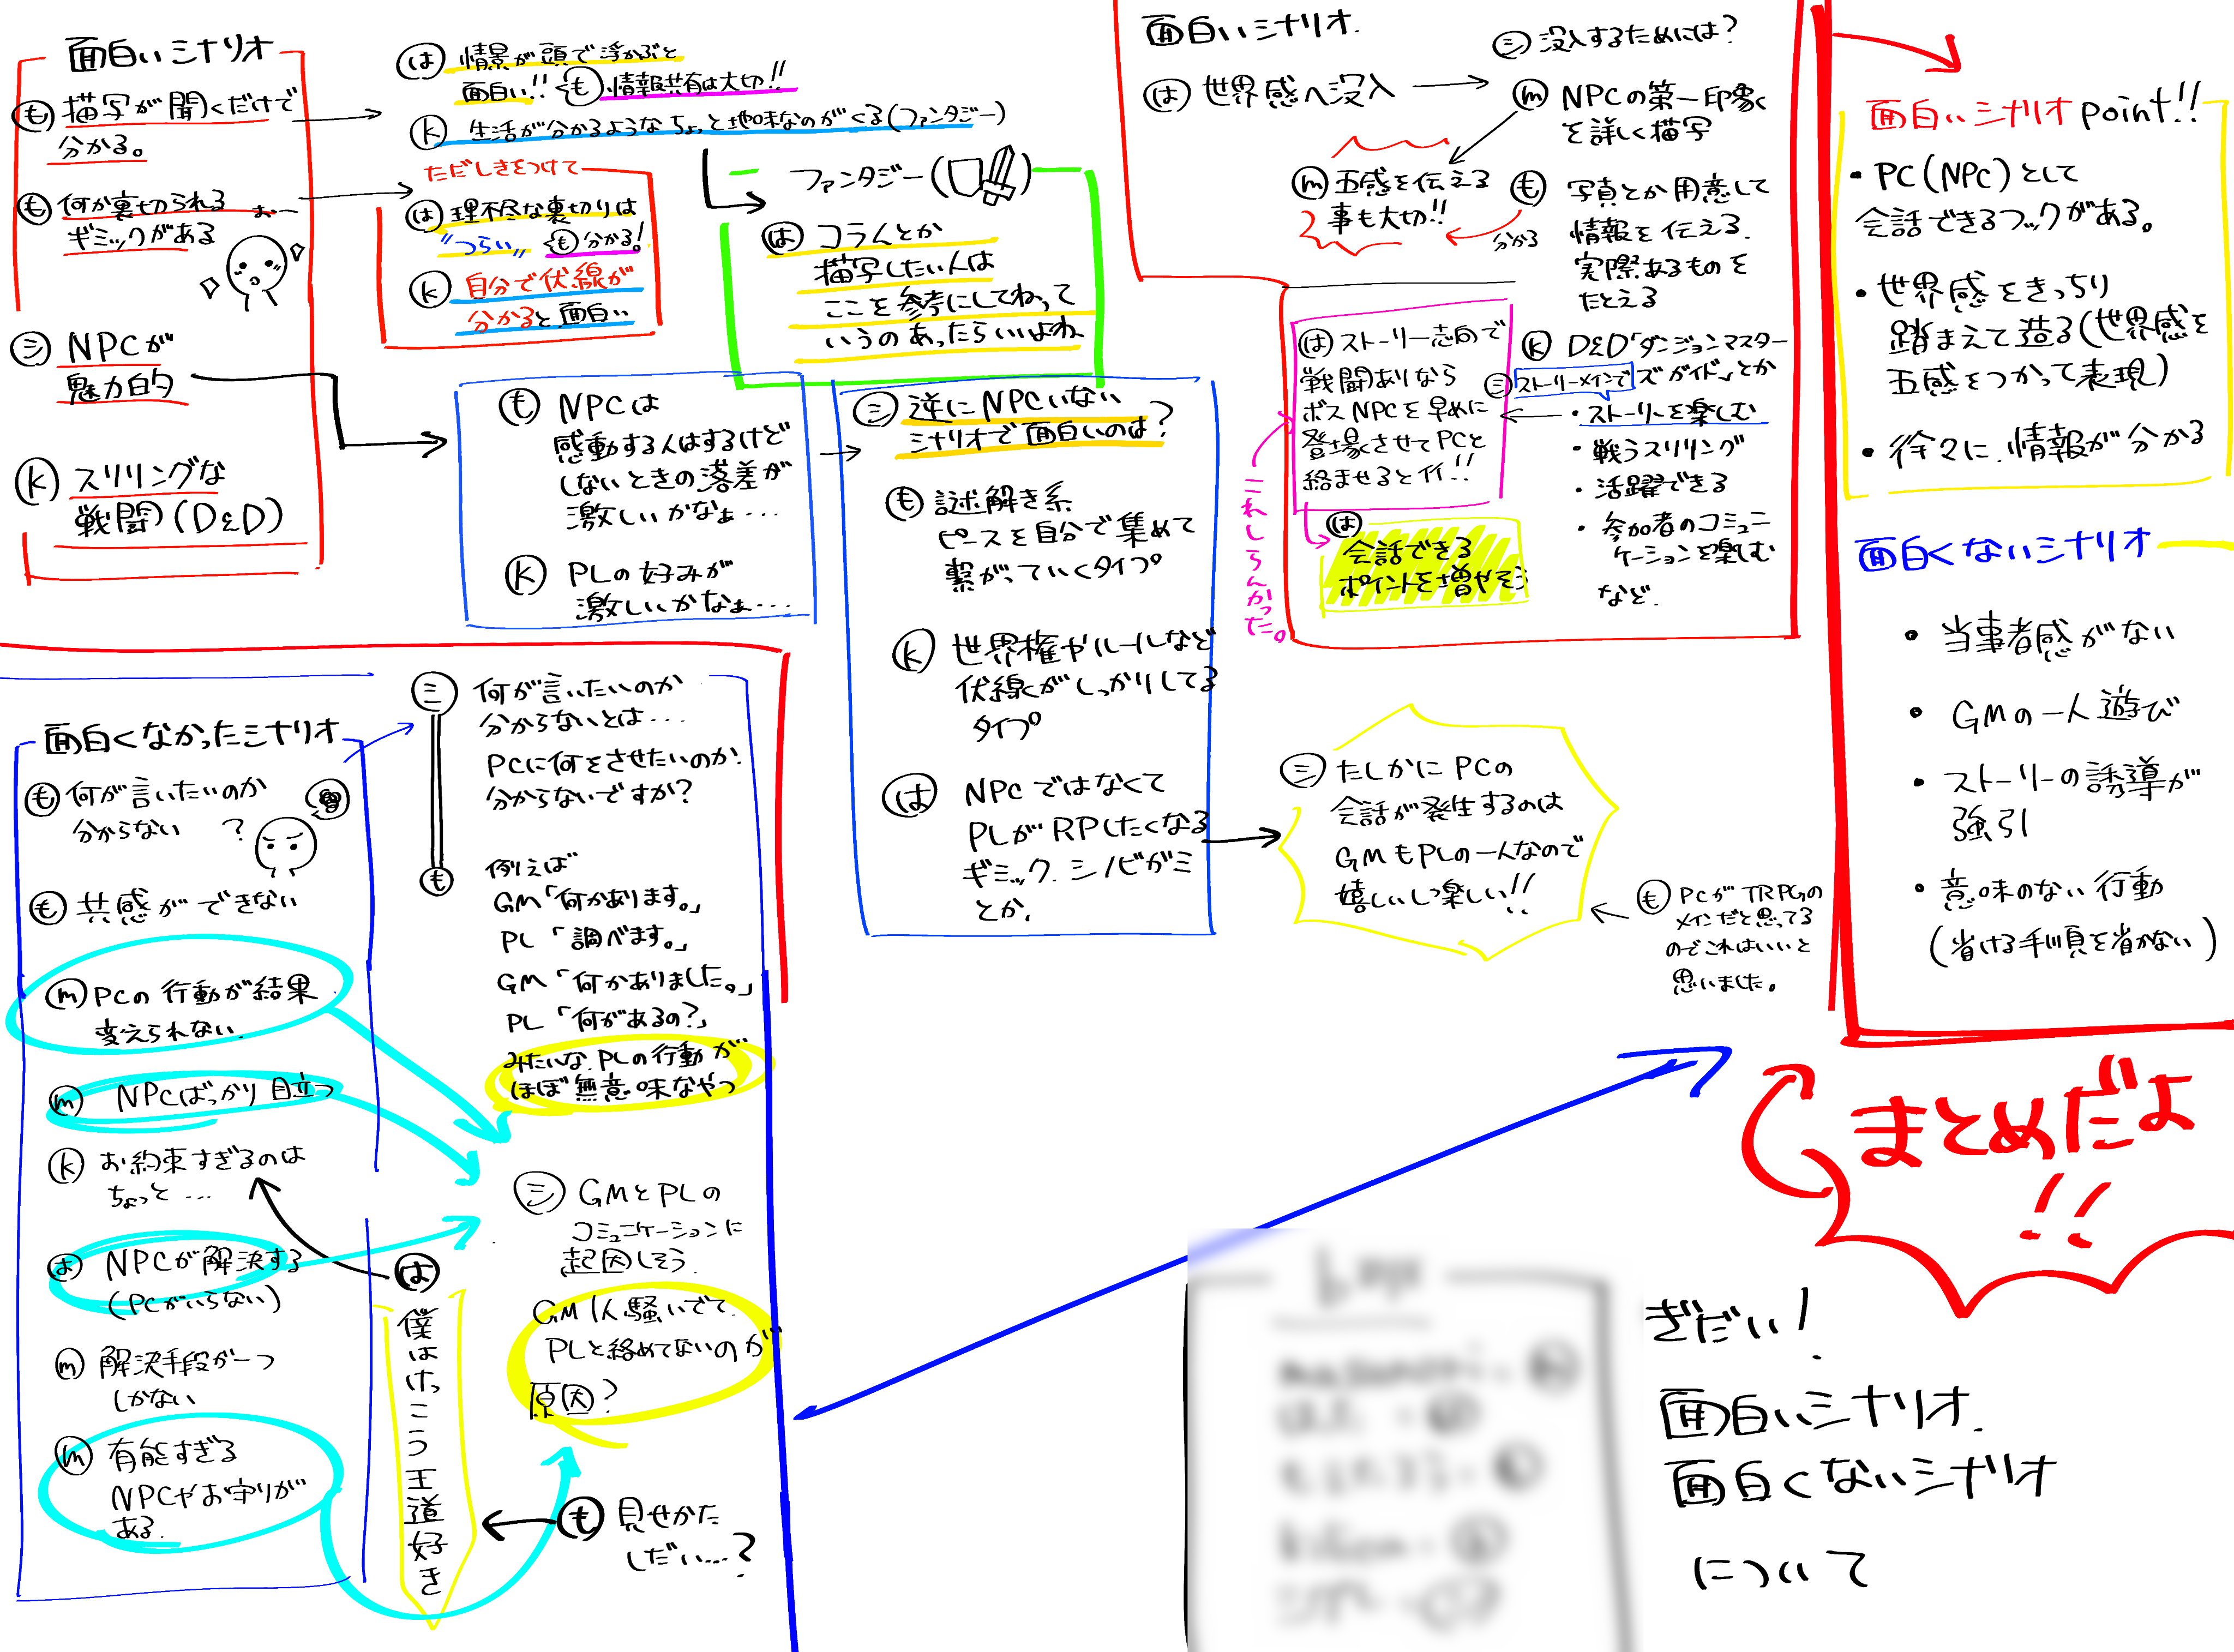 面白いシナリオ
も 描写が聞くだけで
分かる。
も 何か裏切られる
ギミックがある
シ NPCが
魅力的
k スリリングな
戦闘(D&D)
は 情景が頭で浮かぶと
面白い!! も 情報共有は大切!!
k 生活が分かるような ちょっと地味なのがくる(ファンタジー)
ただしきをつけて
は 理不尽な裏切りは
"つらい" も 分かる!
k 自分で伏線が
分かると面白い
ファンタジー( )
は コラムとか
描写したい人は
ここを参考にしてねって
いうのあったらいいよね
も NPCは
感動する人はするけど
しないときの落差が
激しいかなぁ…
k PLの好みが
激しいかなぁ…
シ 逆にNPCいない
シナリオで面白いのは?
も 謎解き系
ピースを自分で集めて
繋がっていくタイプ
k 世界権やルールなど
伏線がしっかりしてる
タイプ
は NPCではなくて
PLがRPしたくなる
ギミック. シノビガミ
とか.
シ たしかにPCの
会話が発生するのは
GMもPLの一人なので
嬉しいしっ楽しい!!
も PCがTRPGの
メインだと思ってる
のでこれはいいと
思いました。
面白いシナリオ.
は 世界感へ没入
シ 没入するためには?
m NPCの第一印象
を詳しく描写
m 五感を伝える
事も大切!!
も 写真とか用意して
情報を伝える.
実際あるものを
たとえる
分かる
k D&D「ダンジョンマスター
ズガイド」とか
シ ストーリーメインで
・ストーリーを楽しむ
・戦うスリリング
・活躍できる
・参加者のコミュニ
ケーションを楽しむ
など.
は ストーリー志向で
戦闘ありなら
ボスNPCを早めに
登場させてPCと
絡ませるとイイ!!
これしらんかった。
は
会話できる
ポイントを増やそう
面白いシナリオ point!!
・PC(NPC)として
会話できるフックがある。
・世界感をきっちり
踏まえて造る(世界感を
五感をつかって表現)
・徐々に.情報が分かる
面白くないシナリオ
・当事者感がない
・GMの一人遊び
・ストーリーの誘導が
強引
・意味のない行動
(省ける手順を省かない)
まとめだよ
!!
面白くなかったシナリオ
も 何が言いたいのか
分からない ?
も 共感ができない
m PCの行動が結果
変えられない.
m NPCばっかり目立つ
k お約束すぎるのは
ちょっと…
は NPCが解決する
(PCがいらない)
m 解決手段が一つ
しかない
m 有能すぎる
NPCやお守りが
ある.
シ 何が言いたいのか
分からないとは…
PCに何をさせたいのか.
分からないですか?
も 例えば
GM「何かあります。」
PL「調べます。」
GM「何かありました。」
PL「何があるの?」
みたいな.PLの行動が
ほぼ無意味なやつ
シ GMとPLの
コミュニケーションに
起因しそう.
GM1人騒いでて.
PLと絡めてないのが
原因?
は
僕はけっこう王道好き
も 見せかた
しだい…?
ぎだい!
面白いシナリオ.
面白くないシナリオ
について